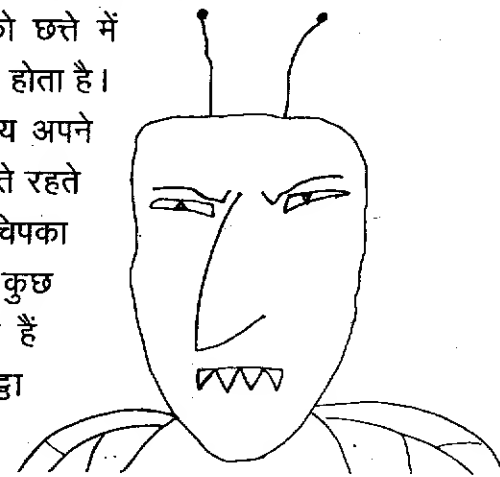 को छत्ते में
होता है।
य अपने
ते रहते
चिपका
कुछ
हैं